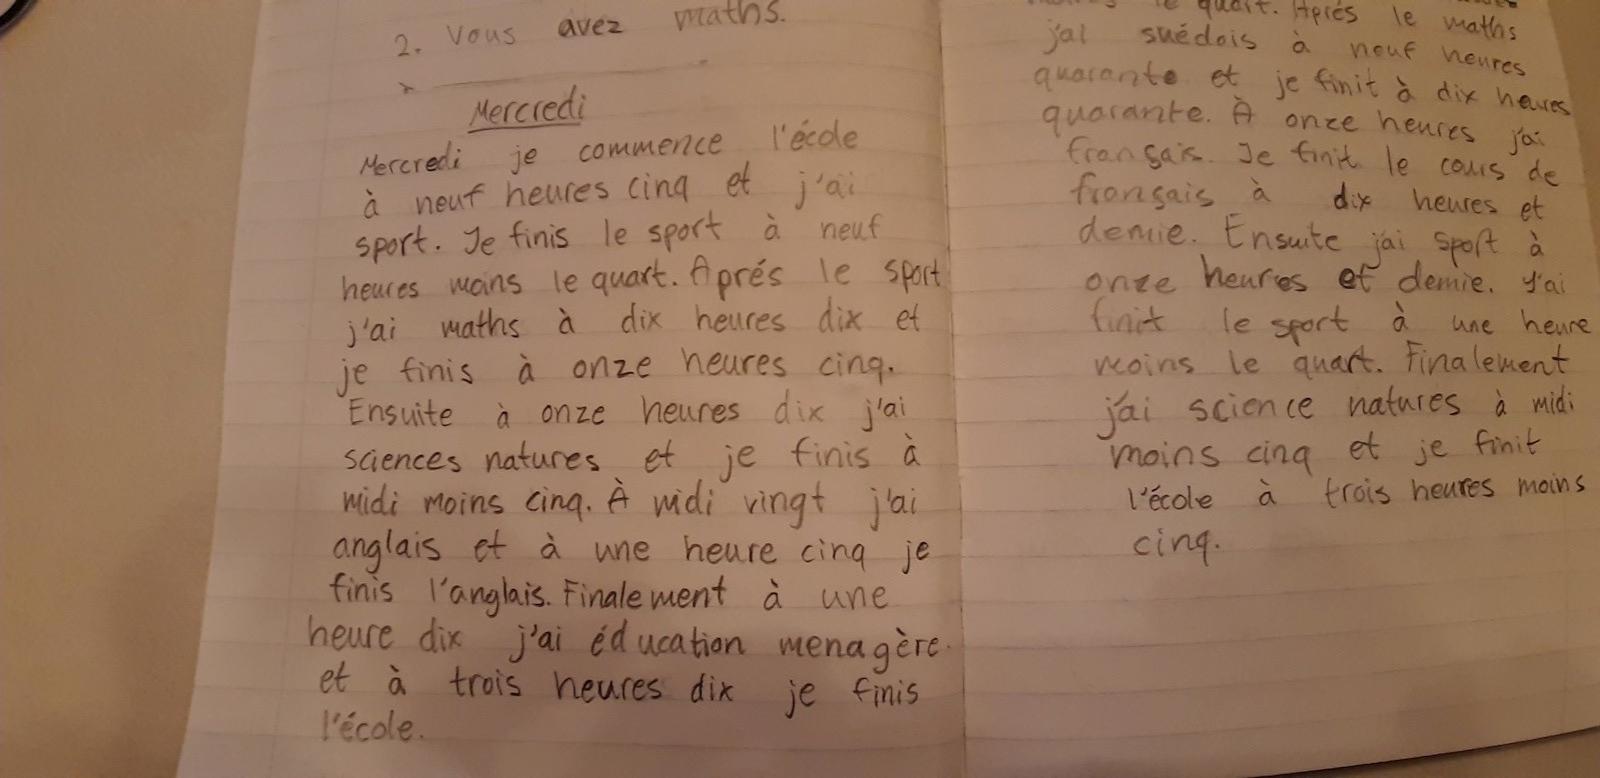 2. Vous avez maths.
Mercredi
Mercredi je commence l'école
à neuf heures cinq et j'ai
sport. Je finis le sport à neuf
heures moins le quart. Aprés le sport
j'ai maths à dix heures dix et
je finis à onze heures cinq.
Ensuite à onze heures dix j'ai
sciences natures et je finis à
midi moins cinq. À midi vingt j'ai
anglais et à une heure cinq je
finis l'anglais. Finalement à une
heure dix j'ai éducation menagère
et à trois heures dix je finis
l'école.
le quart. Aprés le maths
j'ai suédois à neuf heures
quarante et je finit à dix heures
quarante. À onze heures j'ai
français. Je finit le cours de
français à dix heures et
demie. Ensuite j'ai sport à
onze heures et demie. J'ai
finit le sport à une heure
moins le quart. Finalement
j'ai science natures à midi
moins cinq et je finit
l'école à trois heures moins
cinq.